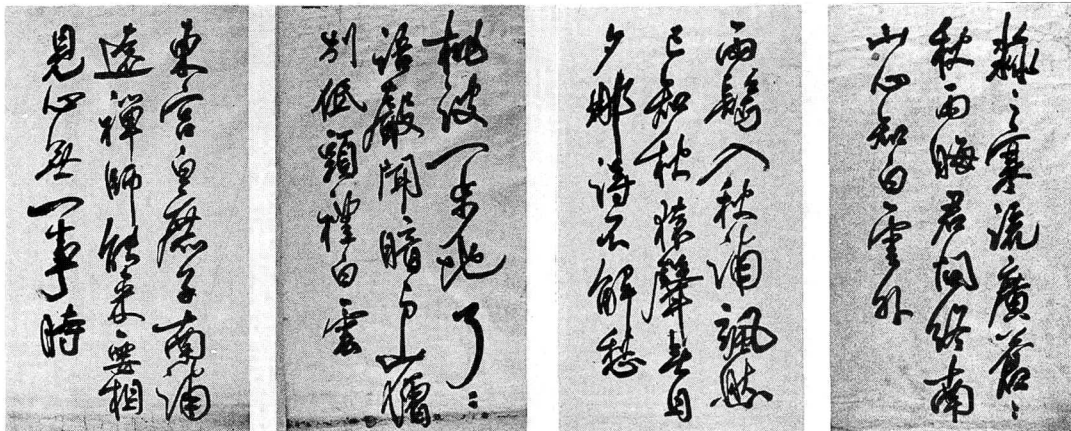 淼〻寒流廣蒼〻
秋雨晦君問終南
山心知白雲外
兩鬢入秋浦颯然
已知秋猿聲日
夕那詩不解愁
桃波一步地了〻
語聲聞暗与山僧
別低頭禮白雲
東宮白庶子南浦
遠禪師能來要相
見心無一事時